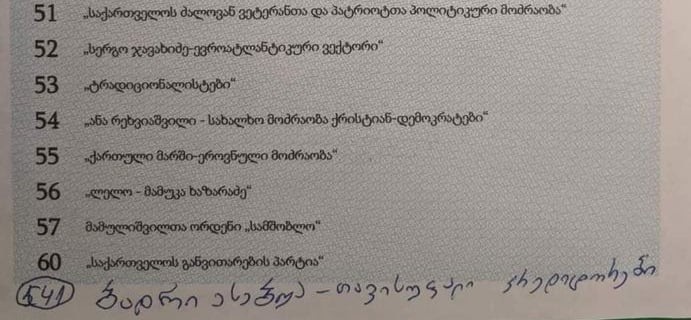 51 „საქართველოს ძალოვან ვეტერანთა და პატრიოტთა პოლიტიკური მოძრაობა“
52 „სერგო ჯავახიძე-ევროატლანტიკური ვექტორი“
53 „ტრადიციონალისტები“
54 „ანა რეხვიაშვილი - სახალხო მოძრაობა ქრისტიან-დემოკრატები“
55 „ქართული მარში-ეროვნული მოძრაობა“
56 „ლელო - მამუკა ხაზარაძე“
57 მამულიშვილთა ორდენი „სამშობლო“
60 „საქართველოს განვითარების პარტია“
541 ბადრი ესებუა - თავისუფალი კრედიტორები